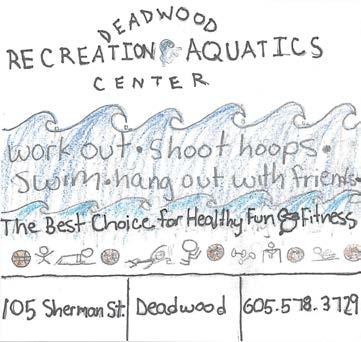 DEADWOOD
RECREATION & AQUATICS
CENTER
work out • shoot hoops •
swim • hang out with friends •
The Best Choice for Healthy Fun & Fitness
105 Sherman St. Deadwood 605.578.3729